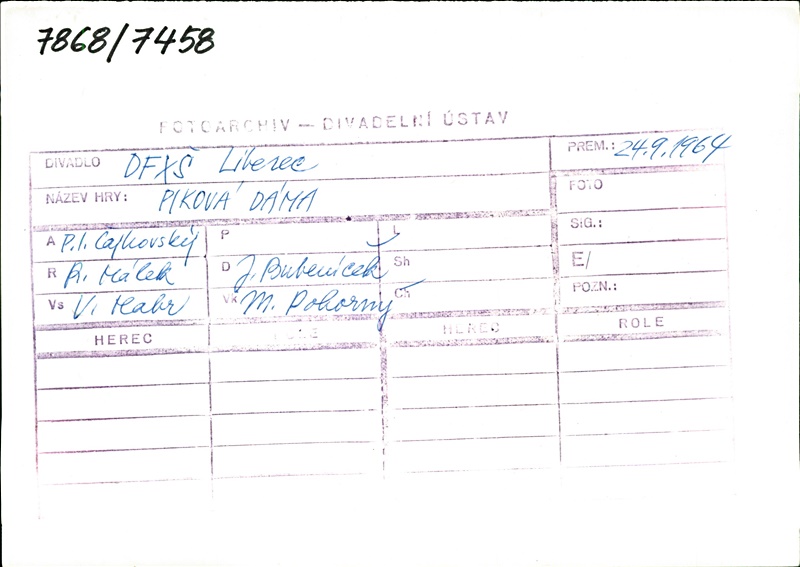 7868/7458
FOTOARCHIV — DIVADELNÍ ÚSTAV
DIVADLO DFXŠ Liberec
PREM.: 24.9.1964
NÁZEV HRY: PIKOVÁ DÁMA
FOTO
A P.I. Čajkovský P L SIG.:
R R. Málek D J. Bubeníček Sh E/
Vs V. Habr Vk M. Pokorný Ch POZN.:
HEREC ROLE HEREC ROLE